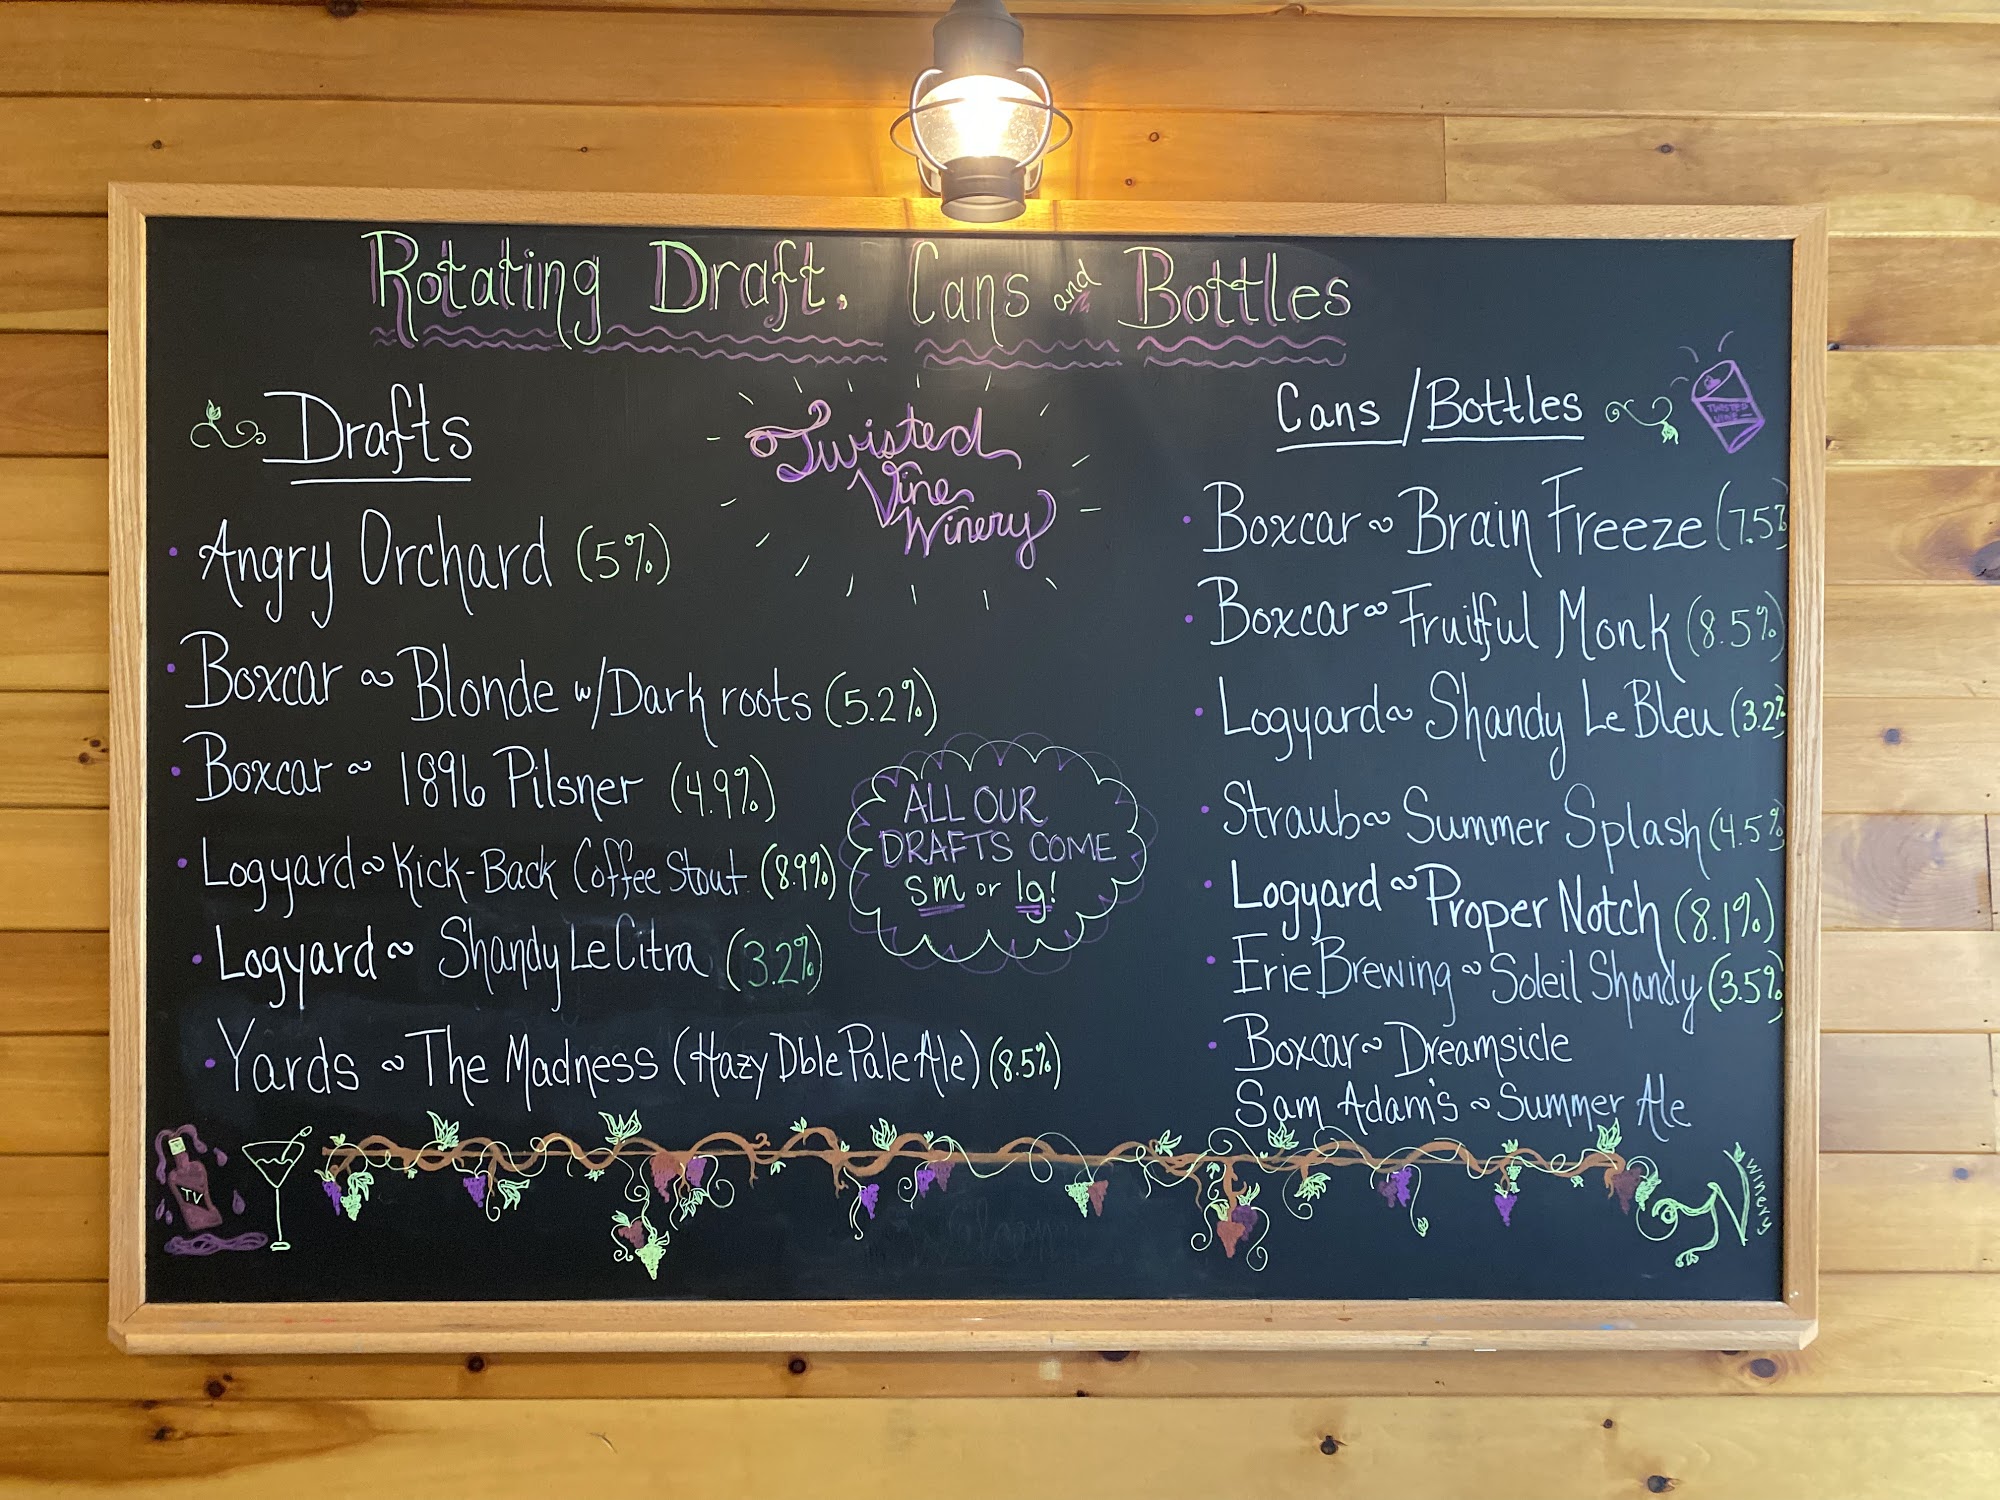 Rotating Draft, Cans and Bottles
Drafts
• Angry Orchard (5%)
• Boxcar ~ Blonde w/Dark roots (5.2%)
• Boxcar ~ 1896 Pilsner (4.9%)
• Logyard ~ Kick-Back Coffee Stout (8.9%)
• Logyard ~ Shandy Le Citra (3.2%)
• Yards ~ The Madness (Hazy Dble Pale Ale) (8.5%)
Twisted
Vine
Winery
ALL OUR
DRAFTS COME
sm or lg!
Cans/Bottles
TWISTED
VINE
• Boxcar ~ Brain Freeze (7.5%
• Boxcar ~ Fruitful Monk (8.5%)
• Logyard ~ Shandy Le Bleu (3.2%
• Straub ~ Summer Splash (4.5%)
• Logyard ~ Proper Notch (8.1%)
• Erie Brewing ~ Soleil Shandy (3.5%)
• Boxcar ~ Dreamsicle
Sam Adam's ~ Summer Ale
TV
Winery